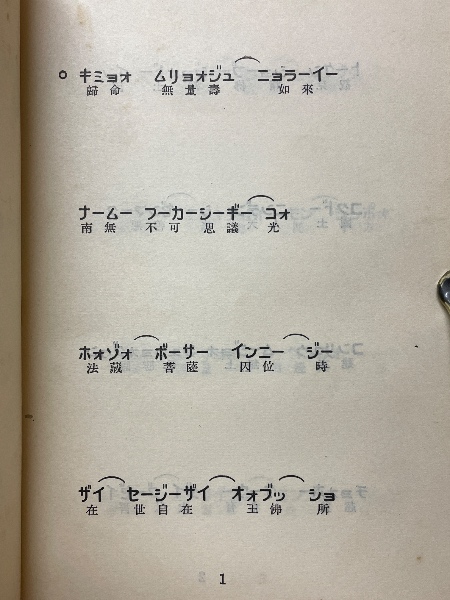 ○ キミョオ ムリョオジュ ニョラーイー
歸命 無量壽 如來
ナームー フーカーシーギー コォ
南無 不可思議 光
ホォゾォ ボーサー インニー ジー
法藏 菩薩 因位 時
ザイ セージーザイ オォブッ ショ
在 世自在 王佛 所
1